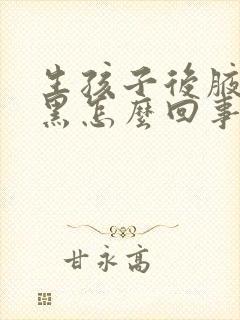 生孩子後腋
黑怎麼回事
甘永高